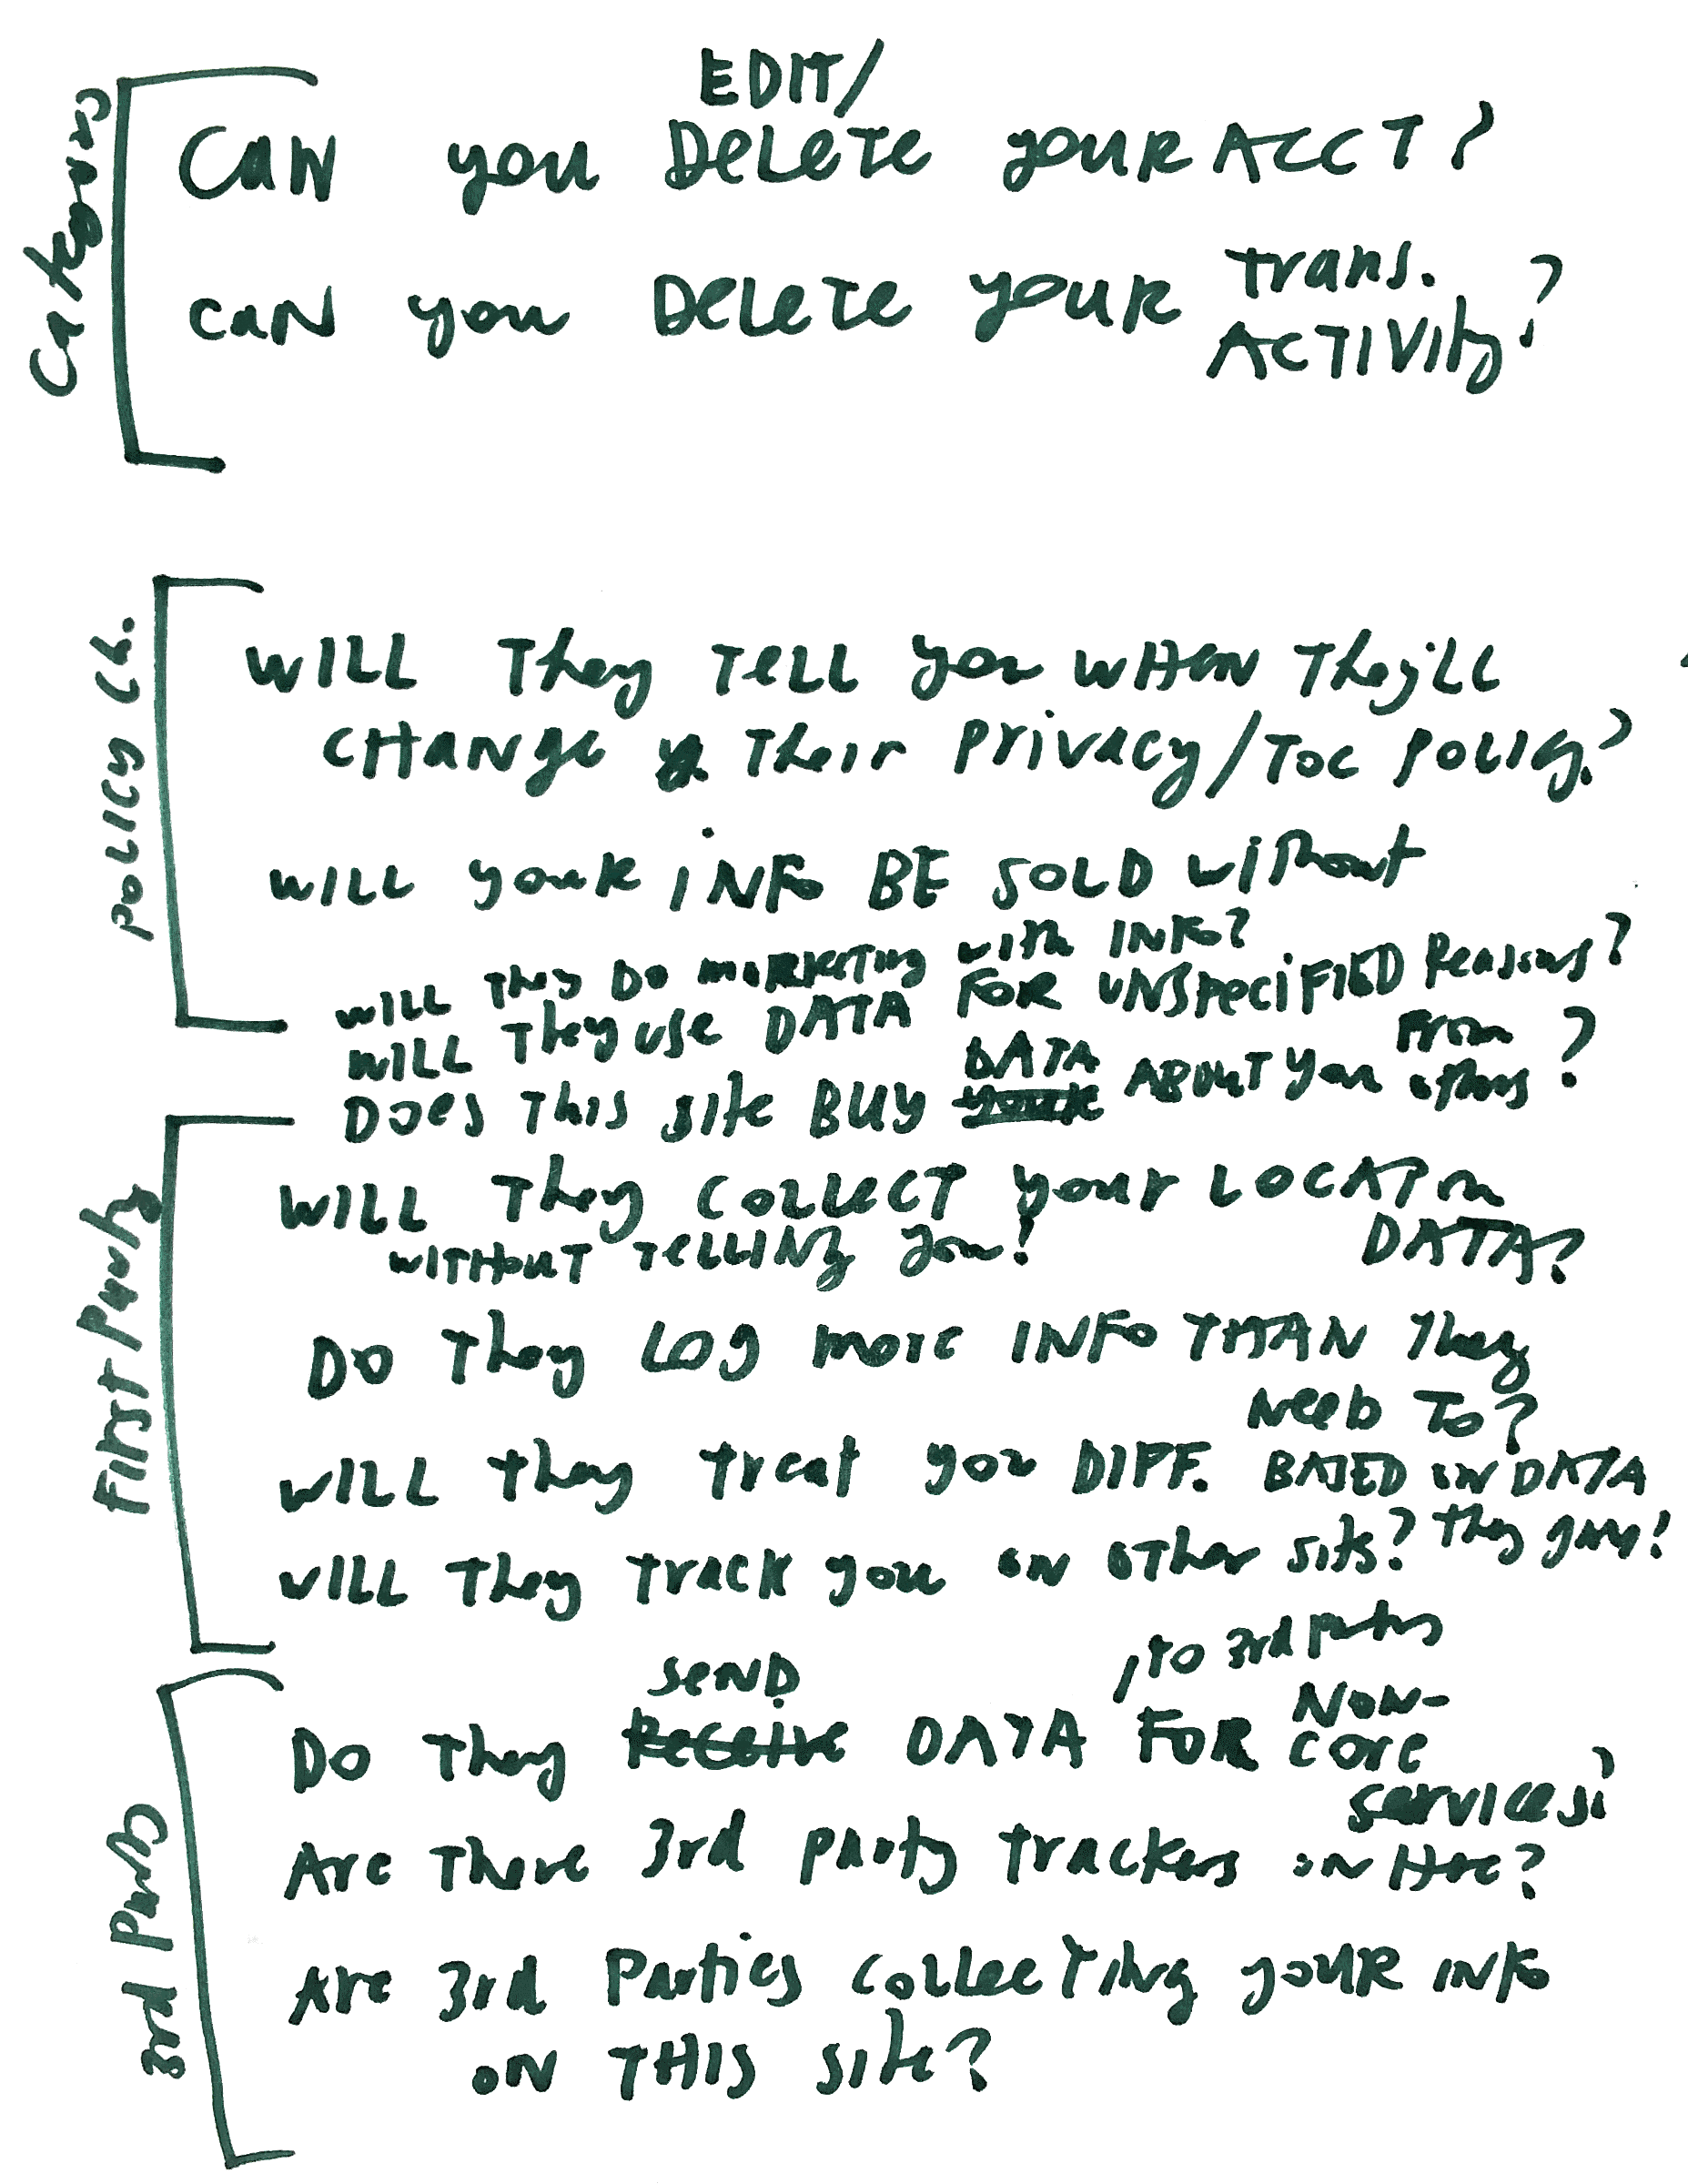 EDIT/
CAN you DELETE your ACCT?
CAN you DELETE your trans.
ACTIVITy?
POLICY Ch.
WILL They TELL you WHEN They'LL
CHANge Their Privacy/TOC POLICy?
WILL your iNFo BE SOLD without
WILL They Do MARKETING with INFo?
WILL They use DATA FOR UNSPECiFIED Reasons?
DOES THIS site BUY DATA ABOUT you From others?
First Party
WILL They COLLECT your LOCATION
WITHOUT TELLING you! DATA?
DO They LOG more INFO THAN They
NeeD To?
WILL they treat you DIFF. BASED ON DATA
they gave!
WILL They track you on other sites?
3rd Party
SEND , to 3rd parties
Do They Receive DATA FOR NON-
core
services?
Are There 3rd party trackers on Here?
Are 3rd Parties collecting your info
ON THIS site?